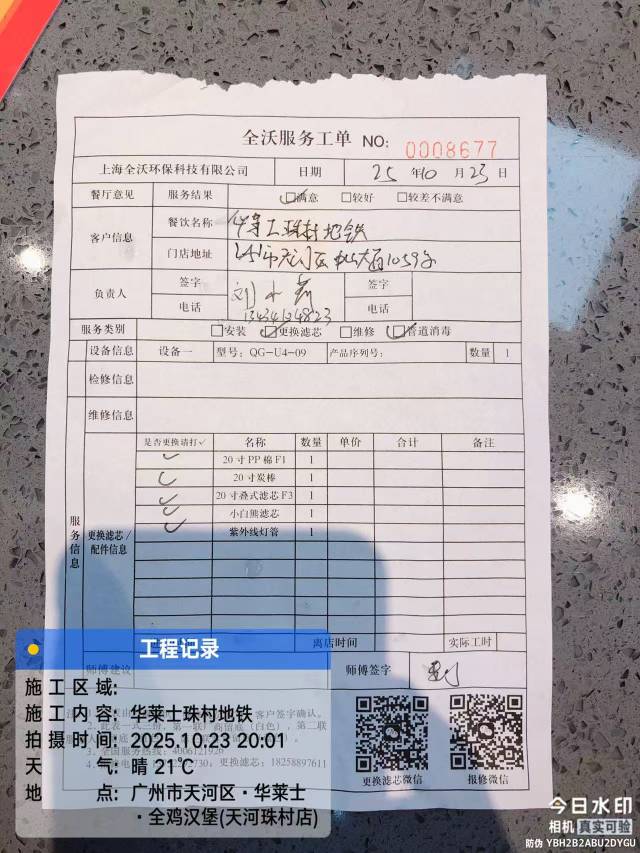 全沃服务工单 NO: 0008677
上海全沃环保科技有限公司 日期 25 年 10 月 23 日
餐厅意见 服务结果 ☑满意 □较好 □较差不满意
客户信息 餐饮名称 华莱士珠村地铁
门店地址 中山大道1059号
负责人 签字 签字
电话 13434124823 电话
服务类别 □安装 ☑更换滤芯 □维修 ☑管道消毒
设备信息 设备一 型号: QG-U4-09 产品序列号: 数量 1
检修信息
维修信息
服务信息 更换滤芯/配件信息
是否更换请打✓ 名称 数量 单价 合计 备注
✓ 20寸PP棉F1 1
✓ 20寸炭棒 1
✓ 20寸叠式滤芯F3 1
✓ 小白熊滤芯 1
✓ 紫外线灯管 1
离店时间 实际工时
师傅建议 师傅签字
客户签字确认。
(白色), 第二联
全国服务热线: 4006121926
730, 更换滤芯: 18258897611
更换滤芯微信 报修微信
工程记录
施工区域:
施工内容: 华莱士珠村地铁
拍摄时间: 2025.10.23 20:01
天气: 晴 21℃
地点: 广州市天河区·华莱士
·全鸡汉堡(天河珠村店)
今日水印
相机 真实可验
防伪 YBH2B2ABU2DYGU